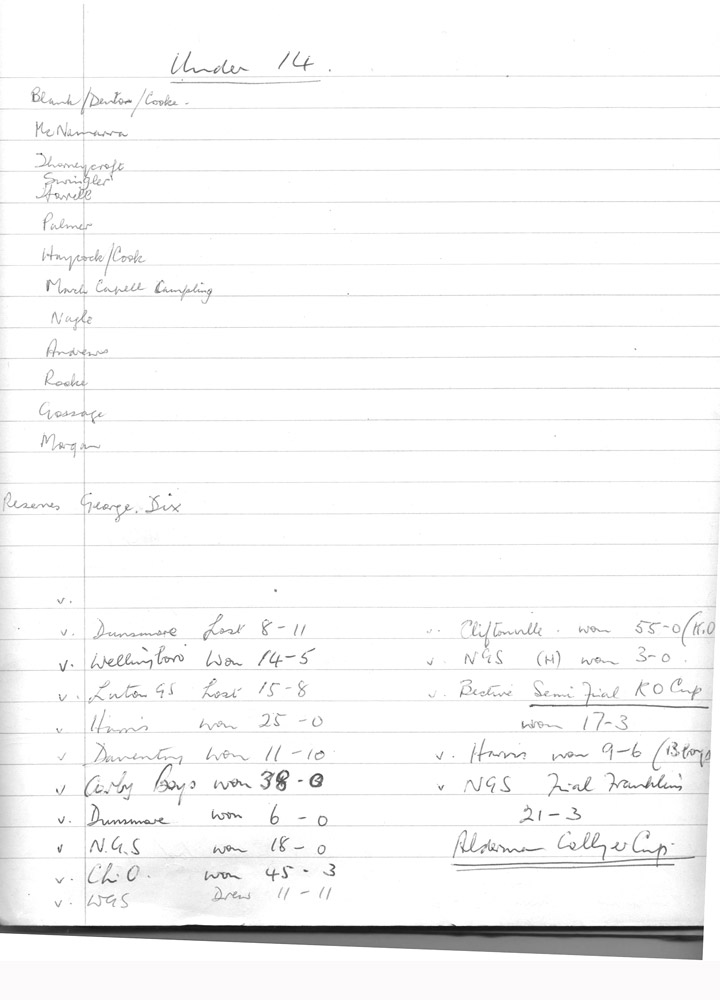 Under 14.
Blank/Denton/Cooke.
McNamarra
Thorneycroft
Swingler
Howell
Palmer
Haycock/Cook
March Capell Campling
Nagle
Andrews
Rooke
Gossage
Morgan
Reserves George. Dix
v.
v. Dunsmore Lost 8-11
v. Wellingboro' Won 14-5
v. Luton GS Lost 15-8
v Harris won 25-0
v Daventry won 11-10
v Corby Boys won 38-0
v. Dunsmore won 6-0
v N.G.S won 18-0
v. Ch. O. won 45-3
v. WGS Drew 11-11
v. Cliftonville. won 55-0 (K.O
v. NGS (H) won 3-0.
v. Bective Semi Final KO Cup
won 17-3
v. Harris won 9-6 (13 boys
v NGS Final Franklins
21-3
Alderman Collyer Cup.